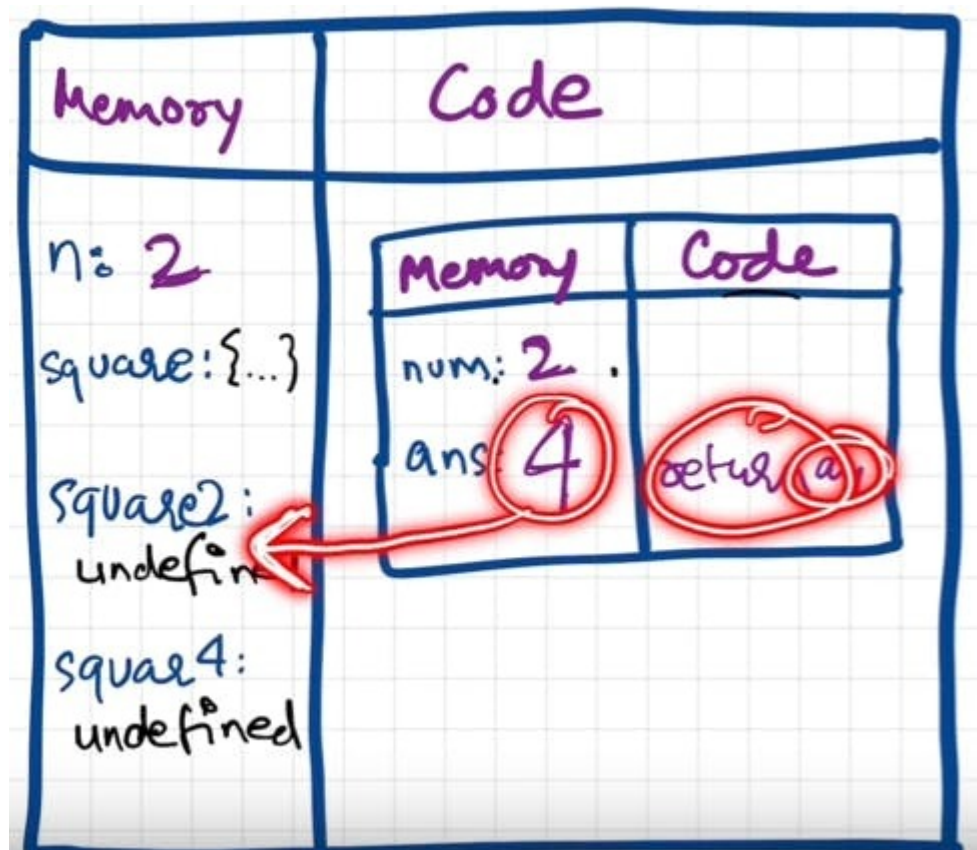 Memory
Code
n: 2
square: {...}
square2:
undefin
squar4:
undefined
Memory
Code
num: 2
ans 4
return an